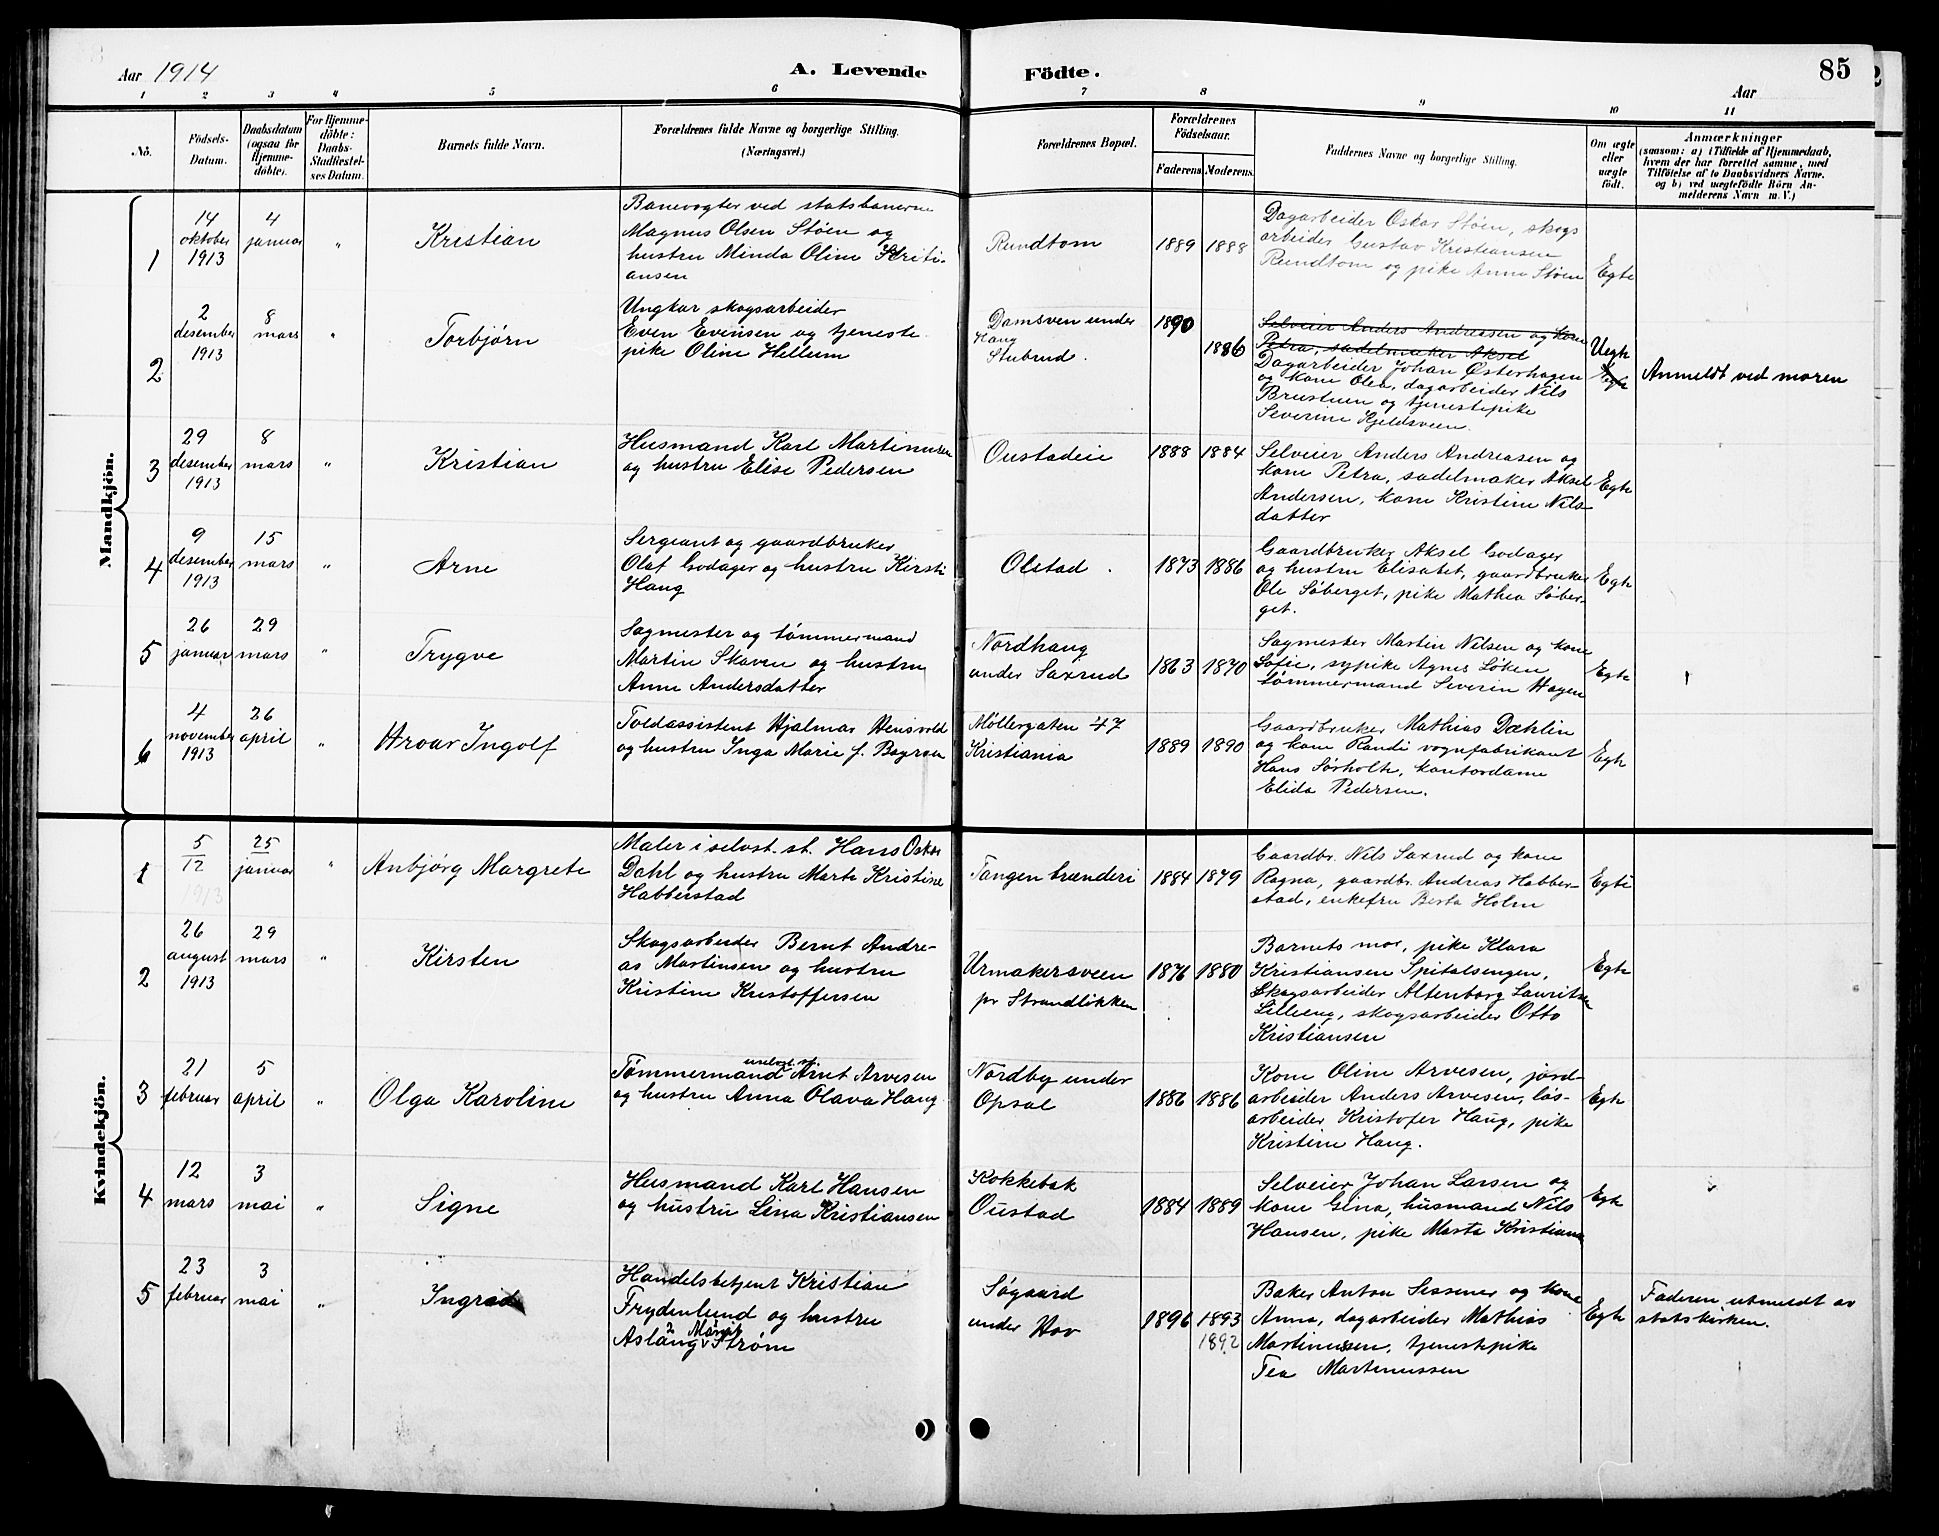 Aar 1914
A. Levende Födte.
85
Aar
1 2 3 4 5 6 7 8 9 10 11
No.
Födsels-
Datum.
Daabsdatum
(ogsaa for
Hjemme-
döbte).
For Hjemme-
döbte:
Daabs-
Stadfæstel-
ses Datum.
Barnets fulde Navn.
Forældrenes fulde Navne og borgerlige Stilling.
(Næringsvei.)
Forældrenes Bopæl.
Forældrenes
Födselsaar.
Faderens. Moderens.
Faddernes Navne og borgerlige Stilling.
Om ægte
eller
uægte
födt.
Anmærkninger
(saasom: a) i Tilfælde af Hjemmedaab,
hvem der har forrettet samme, med
Tilföielse af to Daabsvidners Navne.
og b) ved uægtefödte Börn An-
melderens Navn m. V.)
Mandkjön.
1
14
oktober
1913
4
januar
"
Kristian
Banevogter ved statsbanerne
Magnus Olsen Støen og
hustru Minda Oline Kristi-
ansen
Rundtom
1889
1888
Dagarbeider Oskar Støen, skogs
arbeider Gustav Kristiansen
Rundtom og pike Anna Støen
Egte
2
2
desember
1913
8
mars
"
Torbjørn
Ungkar skogsarbeider
Even Evensen og tjeneste
pike Oline Hellum
Damsveen under
Haug
Stubrud.
1890
1886
Selveier Anders Andreasen og kone
Petra, sadelmaker Aksel
Dagarbeider Johan Østerhagen
og kone Olea, dagarbeider Nils
Brustuen og tjenestepike
Severine Kjeldsveen.
Uegte
Egte
Anmeldt ved moren
3
29
desember
1913
8
mars
"
Kristian
Husmand Karl Martinusen
og hustru Elise Pedersen
Oustadeie
1888
1884
Selveier Anders Andreasen og
kone Petra, sadelmaker Aksel
Andersen, kone Kristine Nils-
datter
Egte
4
9
desember
1913
15
mars
"
Arne
Sergeant og gaardbruker
Olaf Godager og hustru Kirsti
Haug
Olstad.
1873
1886
Gaardbruker Aksel Godager
og hustru Elisabet, gaardbruker
Ole Søberget, pike Mathea Søber-
get.
Egte
5
26
januar
29
mars
"
Trygve
Sagmester og tømmermand
Martin Skaven og hustru
Anne Andersdatter
Nordhaug
under Saxrud
1863
1870
Sagmester Martin Nilsen og kone
Sofie, sypike Agnes Løken
tømmermand Severin Hagen
Egte
6
4
november
1913
26
april
"
Hroar Ingolf
Toldassistent Hjalmar Hensvold
og hustru Inga Marie f. Bøyrsen
Møllergaten 47
Kristiania
1889
1890
Gaardbruker Mathias Dæhlin
og kone Randi vognfabrikant
Hans Sørholte, kontordame
Elida Pedersen.
Egte
Kvindekjön.
1
5
12
1913
25
januar
"
Anbjørg Margrete
Maler i selvst. st. Hans Oskar
Dahl og hustru Marte Kristine
Habberstad
Tangen brænderi
1884
1879
Gaardbr. Nils Saxrud og kone
Ragna, gaardbr. Andreas Habber-
stad, enkefru Berta Holm
Egte
2
26
august
1913
29
mars
"
Kirsten
Skogsarbeider Bernt Andre-
as Martinsen og hustru
Kristine Kristoffersen
Urmakersveen
pr Strandløkken
1876
1880
Barnets mor, pike Klara
Kristiansen Spitalsengen,
Skogsarbeider Altenborg Lauritsen
Lilleeng, skogsarbeider Otto
Kristiansen
Egte
3
21
februar
5
april
"
Olga Karoline
uselvst. st.
Tømmermand Arnt Arvesen
og hustru Anna Olava Haug
Nordby under
Opsal
1886
1886
Kone Oline Arvesen, jord-
arbeider Anders Arvesen, løs-
arbeider Kristofer Haug, pike
Kristine Haug.
Egte
4
12
mars
3
mai
"
Signe
Husmand Karl Hansen
og hustru Lina Kristiansen
Kokkebak
Oustad
1884
1889
Selveier Johan Larsen og
kone Gina, husmand Nils
Hansen, pike Marta Kristians
Egte
5
23
februar
3
mai
"
Ingrid
Handelsbetjent Kristian
Frydenlund og hustru
Aslaug Marit Strøm
Søgaard
under Hov
1896
1893
1892
Baker Anton Sessener og kone
Anna, dagarbeider Mathias
Martinussen, tjenestepike
Tea Martinussen
Egte
Faderen utmeldt av
statskirken.